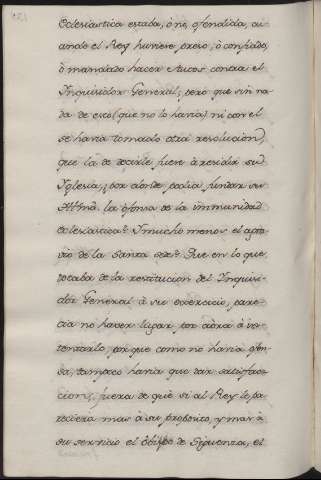 Eclesiastica estaba, ô no, ofendida, cu
ando el Rey huviere preso, ô confinado,
ô mandado hacer Autos contra el
Inquisidor General; pero que sin na
da de esto (que no lo havia) ni con el
se havia tomado otra resolucion,
que la de decirle fuese â residir su
Yglesia; por donde podia fundar su
Alma la ofensa de la immunidad
eclesiastica? Y mucho menos el agra
vio de la Santa sede? Que en lo que
tocaba de la restitucion del Inquisi
dor General â su exercicio, pare
cia no haver lugar, por aora â in
tentarlo, por que como no havia ofen
sa, tampoco havia que dar satisfac
cion; fuera de que si al Rey le pa
reciera mas â su proposito, y mas â
su servicio el Obispo de Siguenza, el